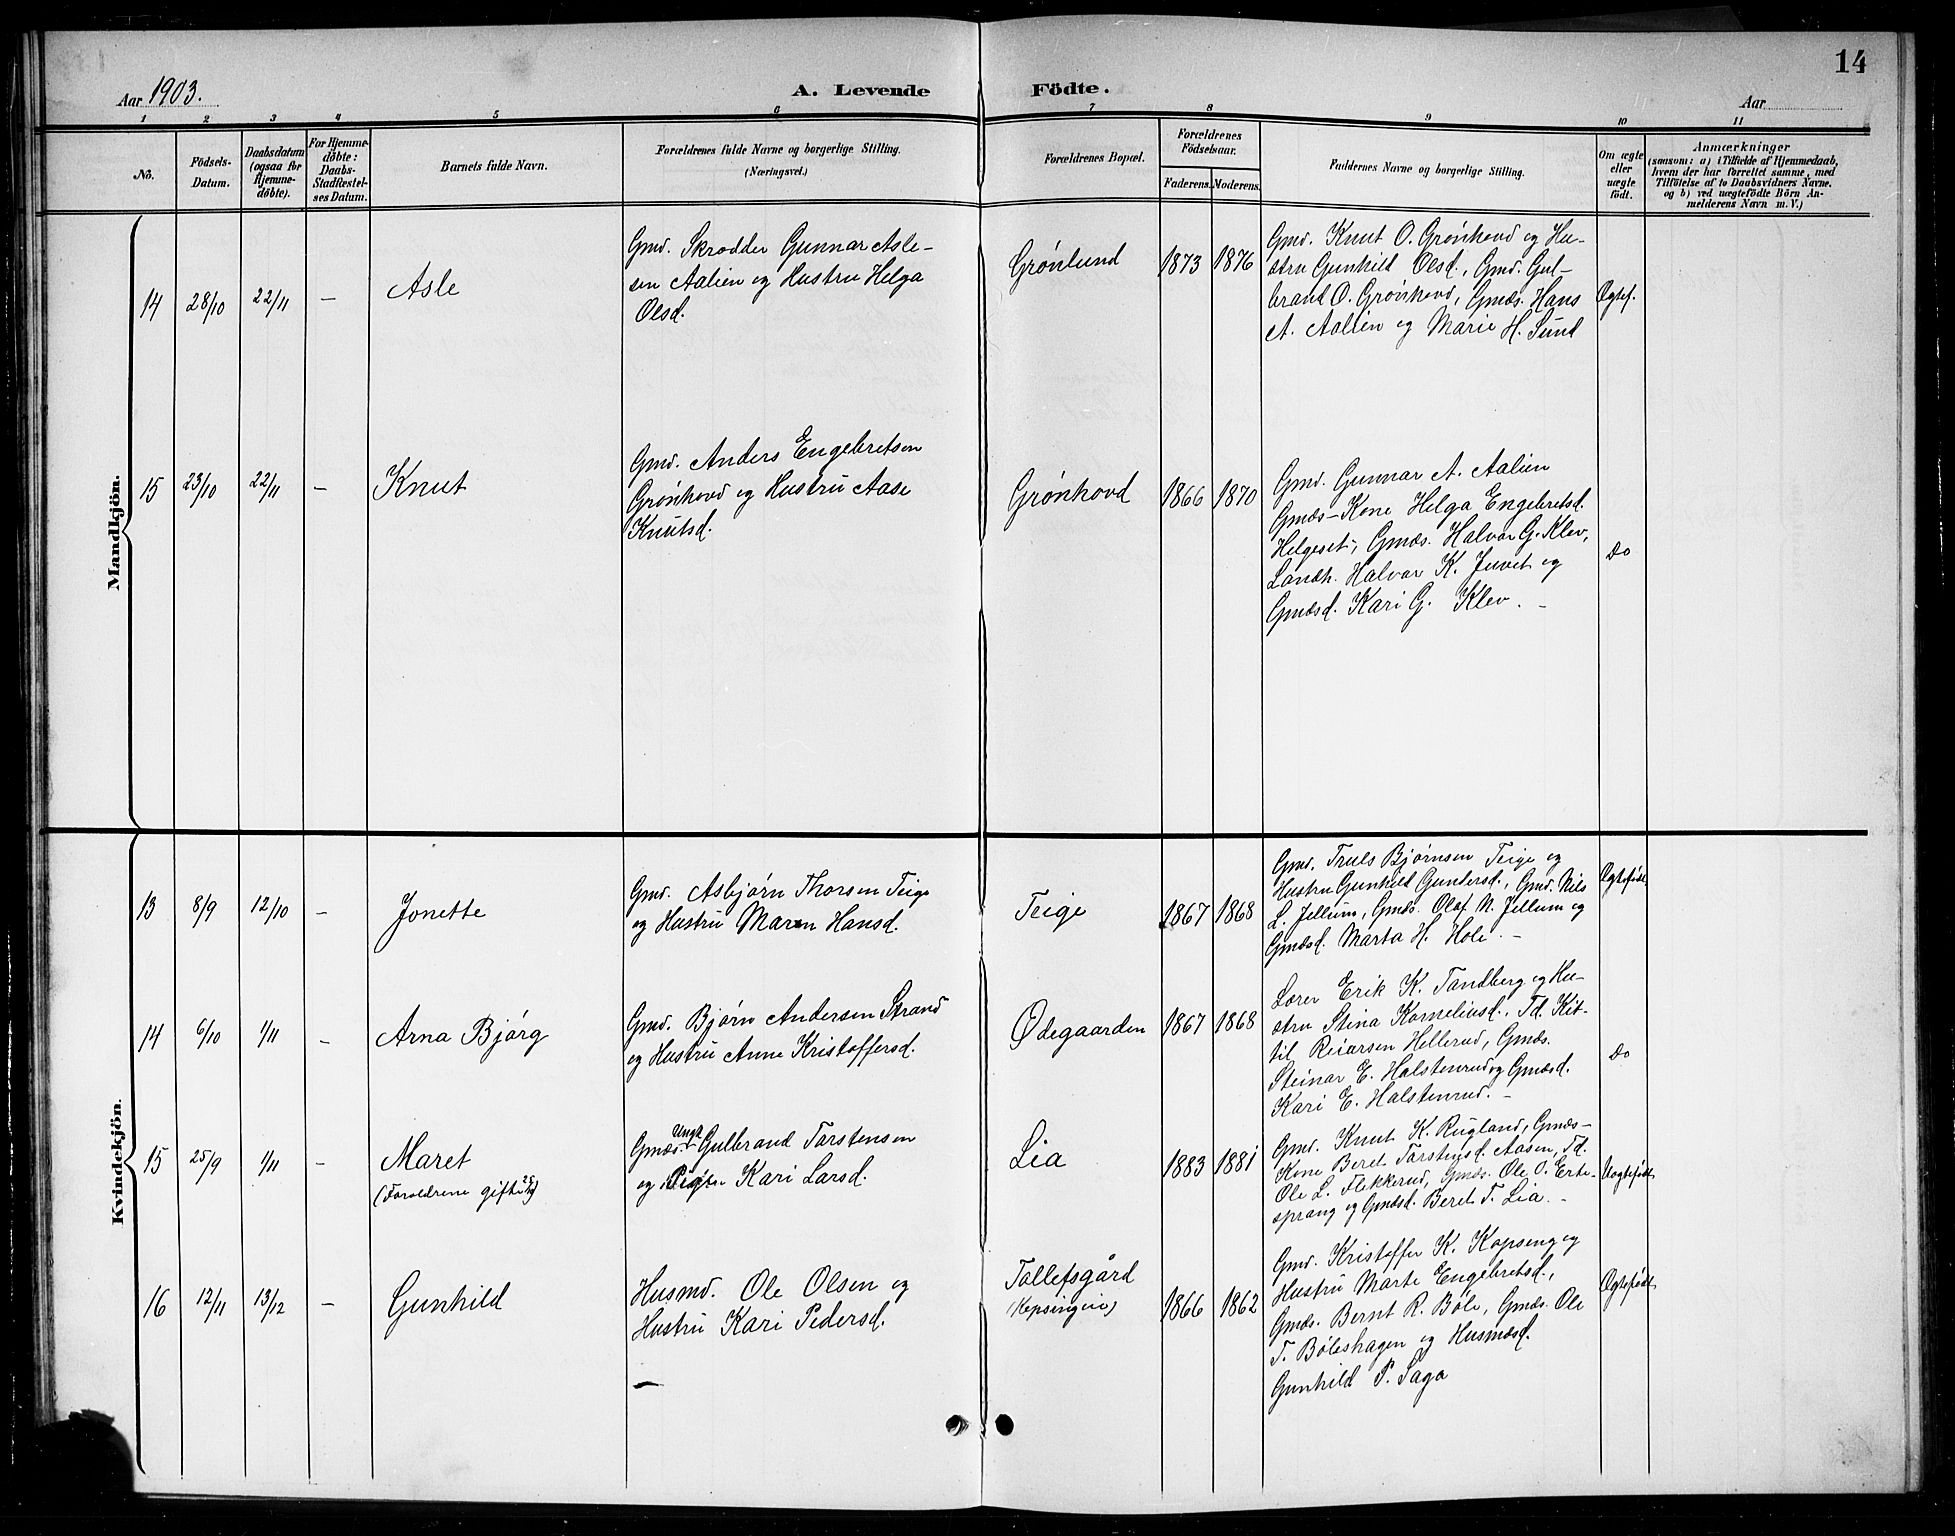 14
Aar 1903.
A. Levende Födte.
Aar
1 2 3 4 5 6 7 8 9 10 11
No.
Födsels-
Datum.
Daabsdatum
(ogsaa for
Hjemme-
døbte).
For Hjemme-
døbte:
Daabs-
Stadfæstel-
ses Datum.
Barnets fulde Navn.
Forældrenes fulde Navne og borgerlige Stilling.
(Næringsvei.)
Forældrenes Bopæl.
Forældrenes
Födselsaar.
Faderens. Moderens.
Faddernes Navne og borgerlige Stilling.
Om ægte
eller
uægte
födt.
Anmærkninger
(saasom: a) i Tilfælde af Hjemmedaab,
hvem der har forrettet samme, med
Tilföielse af to Daabsvidners Navne.
og b) ved uægtefödte Börn An-
melderens Navn m. V.)
Mandkjön.
14
28/10
22/11
–
Asle
Gmd. Skrædder Gunnar Asle-
sen Aalien og Hustru Helga
Olsd.
Grönlund
1873
1876
Gmd. Knut O. Grönhovd og Hu-
stru Gunhild Olsd., Gmd. Gul-
brand O. Grönhovd, Gmds. Hans
A. Aalien og Marie H. Sund
Ægtef.
15
23/10
22/11
–
Knut
Gmd. Anders Engebretsen
Grønhovd og Hustru Aase
Knutsd.
Grønhovd
1866
1870
Gmd. Gunnar A. Aalien
Gmds-Kone Helga Engebretsd.
Helgeset, Gmds. Halvor G. Klev,
Landh. Halvor K. Juvet og
Gmdsd. Kari G. Klev. –
Do
Kvindekjön.
13
8/9
12/10
–
Jonette
Gmd. Asbjørn Thorsen Teige
og Hustru Maren Hansd.
Teige
1867
1868
Gmd. Truls Bjørnsen Teige og
Hustru Gunhild Gundersd., Gmd. Nils
L. Jellum, Gmds. Olaf N. Jellum og
Gmdsd. Marta H. Hole. –
Ægtefødt
14
6/10
1/11
–
Arna Bjørg
Gmd. Bjørn Andersen Strand
og Hustru Anne Kristoffersd.
Ødegaarden
1867
1868
Lærer Erik K. Tandberg og Hu-
stru Stina Korneliusd., Td. Kit-
til Reiarsen Hellerud, Gmds.
Steinar E. Halstenrud og Gmdsd.
Kari E. Halstenrud. –
Do
15
25/9
1/11
–
Maret
(Forældrene gifte
Ungk.
Gmds. Gulbrand Torstensen
og Pige Kari Larsd.
Lia
1883
1881
Gmd. Knut K. Rugland, Gmds-
Kone Beret Torstensd. Aasen, Td.
Ole L. Flikkerud, Gmds. Ole O. Erte-
sprang og Gmdsd. Beret T. Lia. –
Uægtefødt
16
12/11
13/12
–
Gunhild
Husmd. Ole Olsen og
Hustru Kari Pedersd.
–
Tollefsgård
1866
1862
Gmd. Kristoffer K. Kopseng og
Hustru Marte Engebretsd.,
Gmds. Bernt R. Bøle, Gmds. Ole
T. Bøleshagen og Husmdsd.
Gunhild P. Saga
Ægtefødt